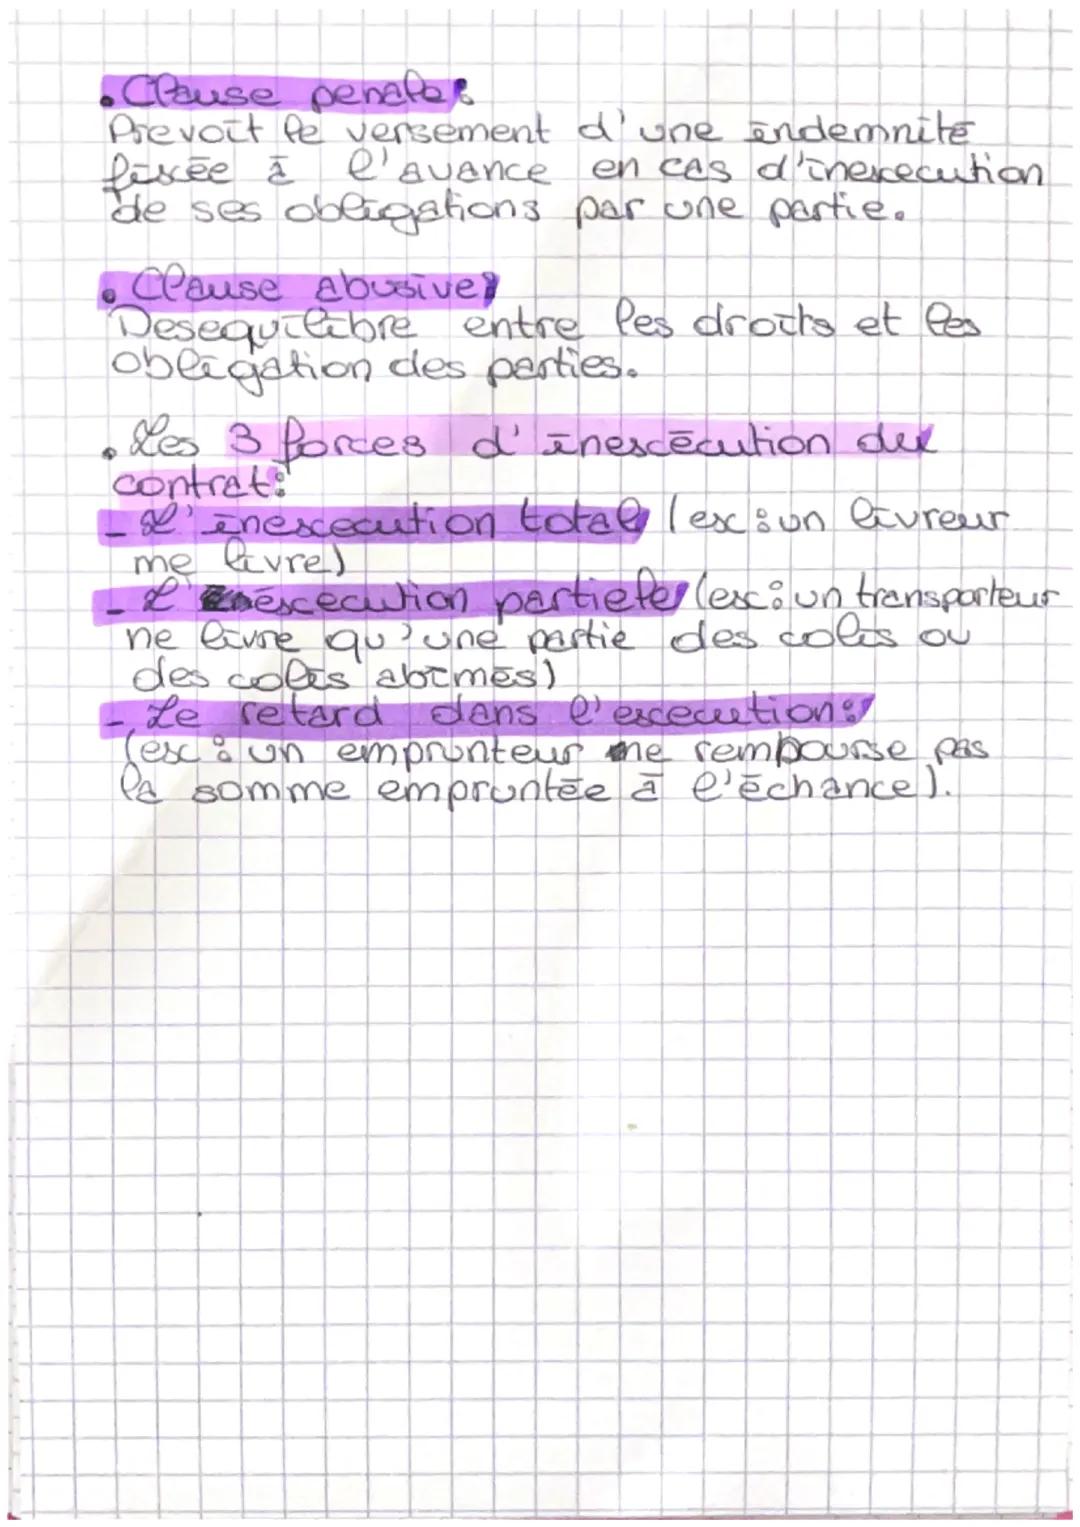 . Clause penale :
Prevoit le versement d'une indemnité
fixée à l'avance en cas d'inexecution
de ses obligations par une partie.
. Clause abusive :
Desequilibre entre les droits et les
obligation des parties.
. Les 3 forces d'inexécution du
contrat :
- L'inexecution total (ex : un livreur
me livre)
- L'inexecution partiele (ex : un transporteur
ne livre qu'une partie des colis ou
des colis abîmés)
- Le retard dans l'execution :
(ex : un emprunteur ne rembourse pas
la somme empruntée à l'échance).